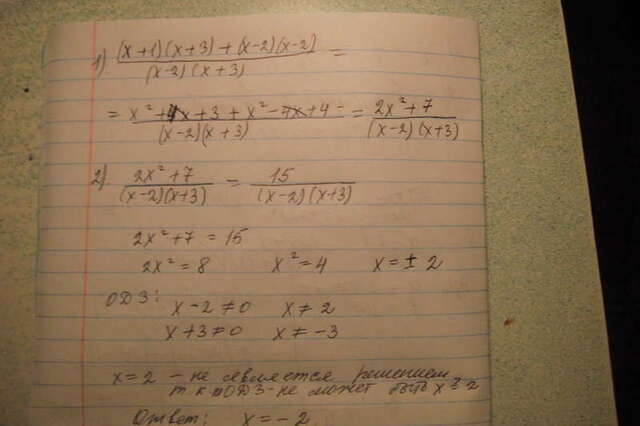 1) ((x+1)(x+3)+(x-2)(x-2))/((x-2)(x+3)) =
= (x²+4x+3+x²-4x+4)/((x-2)(x+3)) = (2x²+7)/((x-2)(x+3))
2) (2x²+7)/((x-2)(x+3)) = 15/((x-2)(x+3))
2x²+7 = 15
2x²=8 x²=4 x=±2
ОДЗ: x-2≠0 x≠2
x+3≠0 x≠-3
x=2 - не является решением
т.к по ОДЗ - не может быть x=2
Ответ: x=-2